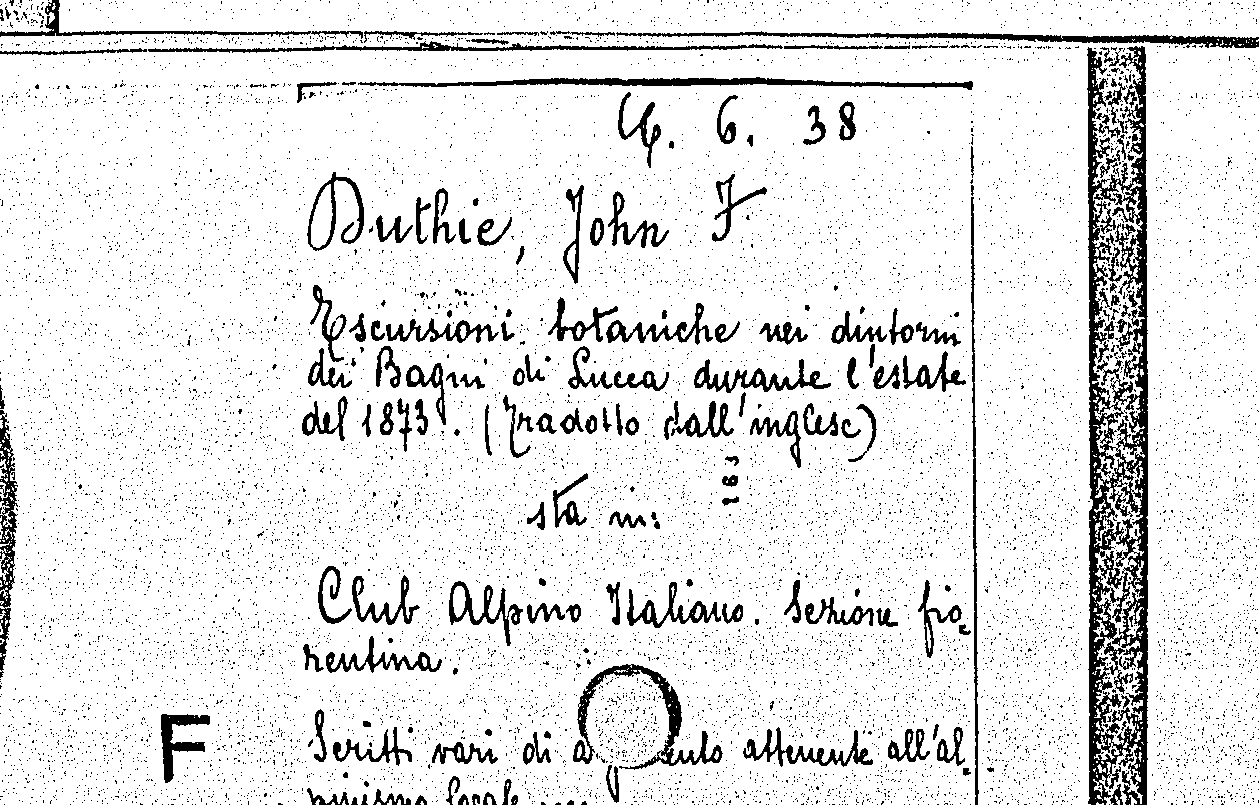 6. 38
Duthie, John F
Escursioni botaniche nei dintorni
dei Bagni di Lucca durante l'estate
del 1873. (Tradotto dall'inglese)
163
sta in:
Club Alpino Italiano. Sezione fio-
rentina.
F
Scritti vari di attenente all'al-
pinismo locale